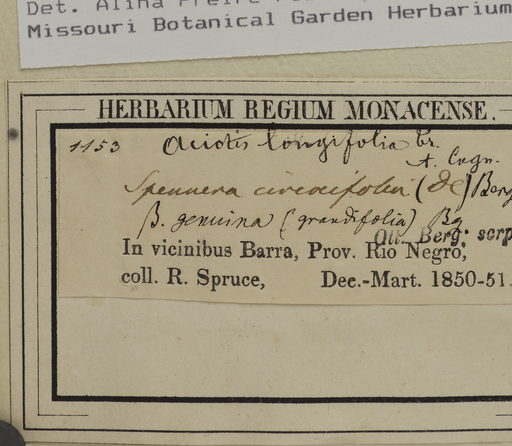 Det. Alina Freire
Missouri Botanical Garden Herbarium
HERBARIUM REGIUM MONACENSE.
1153 Aciotis longifolia Tr.
t. Cogn.
Spennera circaeifolia (DC) Berg
β. genuina (grandifolia) Bg
Ott. Berg: scrp
In vicinibus Barra, Prov. Rio Negro,
coll. R. Spruce, Dec.-Mart. 1850-51.